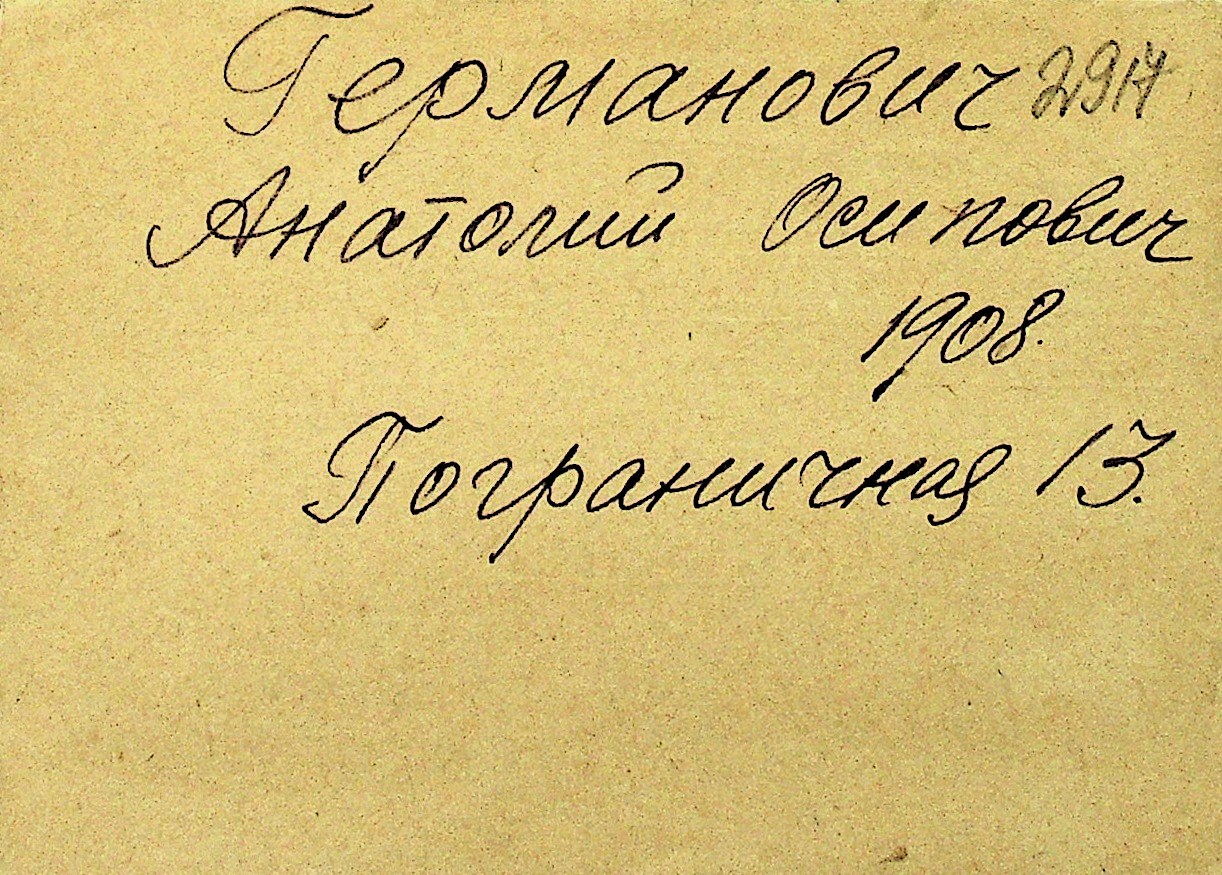 Германович 2917
Анатолий Осипович
1908.
Пограничная 13.